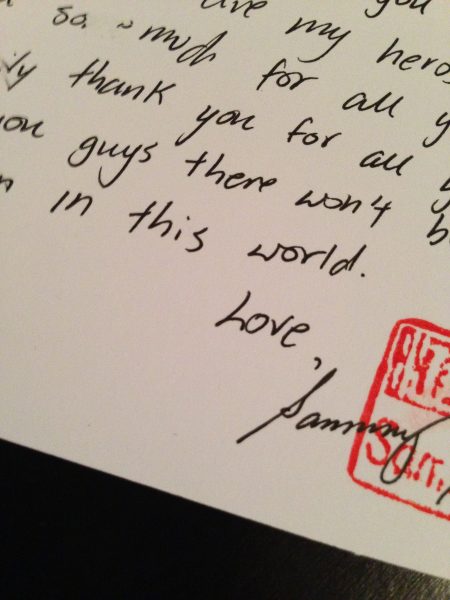 are my heros
so ~ much for all y
thank you for all y
you guys there won't b
in this world.
Love,
Sammy
Sam